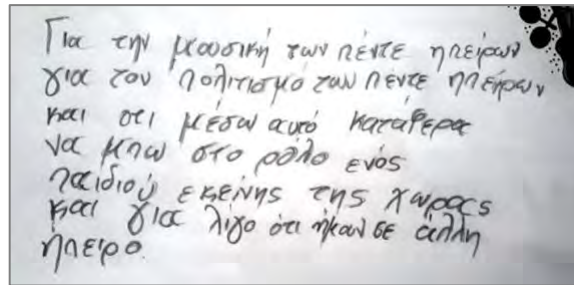 Για την μουσική των πέντε ηπείρων
για τον πολιτισμό των πέντε ηπείρων
και οτι μέσω αυτό κατάφερα
να μπω στο ρόλο ενός
παιδιού εκείνης της χώρας
και για λίγο ότι ήμουν σε άλλη
ήπειρο.